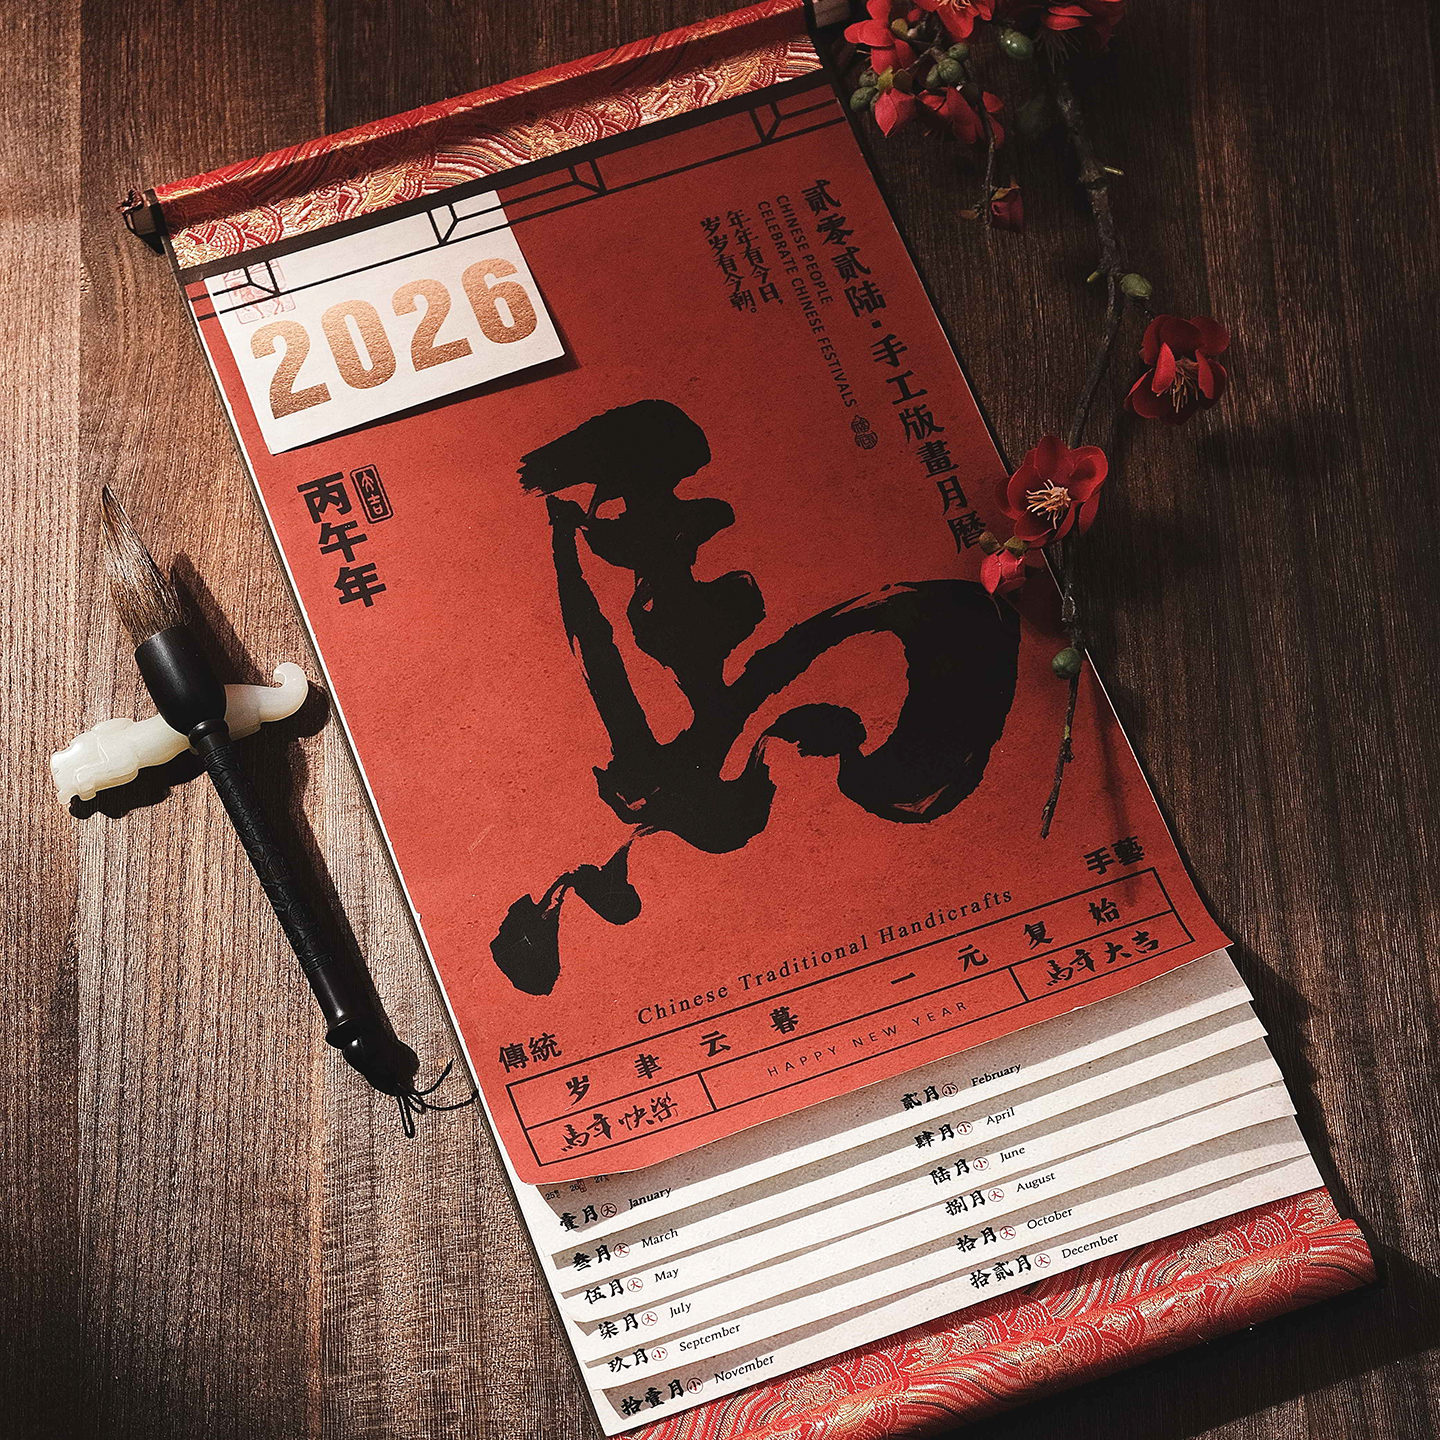 2026
貳零貳陸·手工版畫月曆
CHINESE PEOPLE
CELEBRATE CHINESE FESTIVALS
年年有今日,
岁岁有今朝。
大吉
丙午年
馬
手藝
Chinese Traditional Handicrafts
傳統
岁聿云暮一元复始
馬年快樂
HAPPY NEW YEAR
馬年大吉
貳月小 February
肆月小 April
陆月小 June
捌月大 August
拾月大 October
拾貳月大 December
壹月大 January
叁月大 March
伍月大 May
柒月大 July
玖月小 September
拾壹月小 November